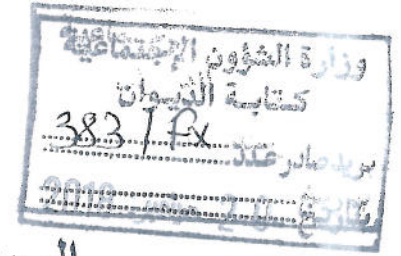 وزارة الشؤون الإجتماعية
كتابة الديوان
بريد صادر عدد 383 / Fx
2018